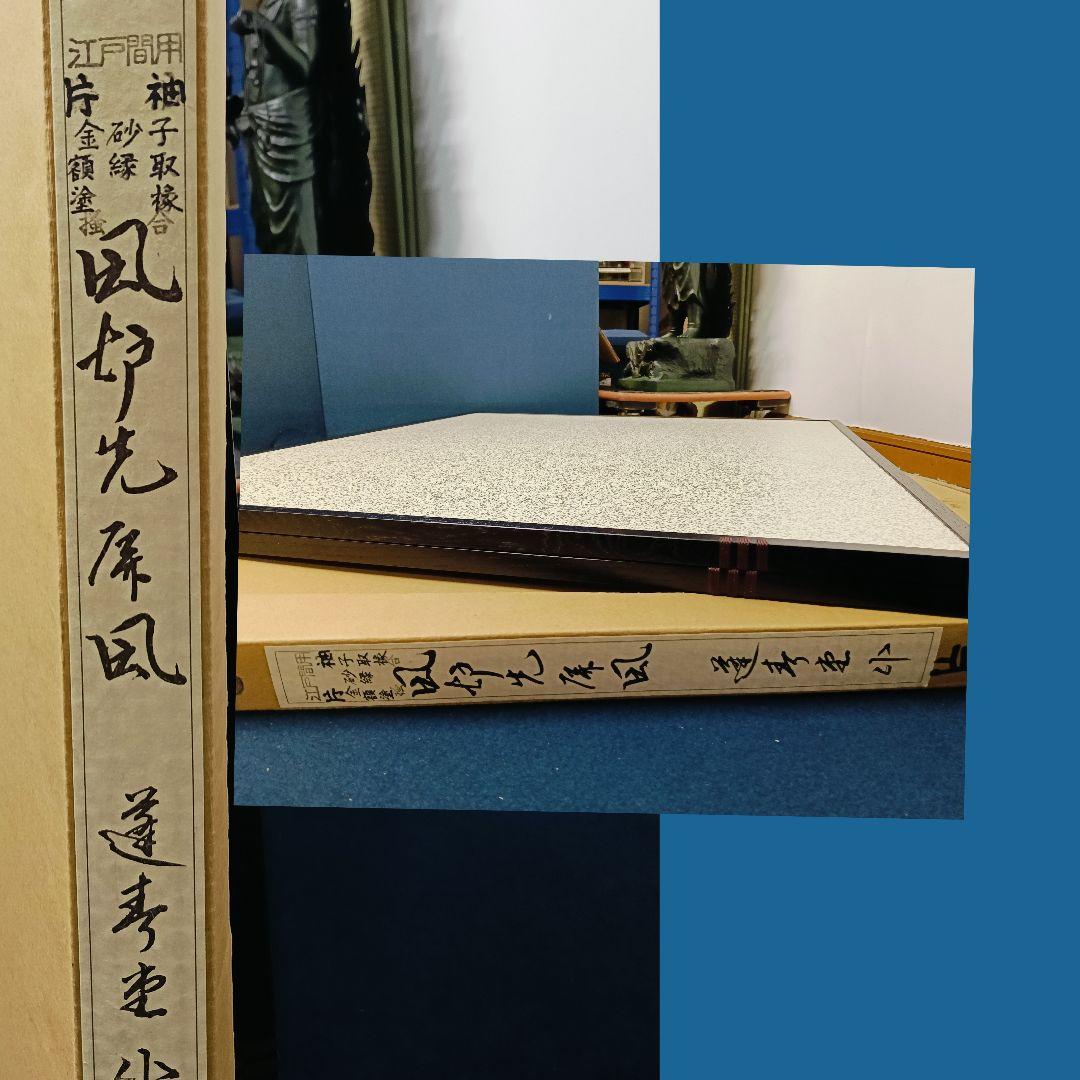 江戸間用
片袖
金砂子
額縁取
塗椽
掻合
風炉先屏風
堂作
江戸間用
片袖
金砂子
額縁取
塗椽
掻合
風炉先屏風
堂作